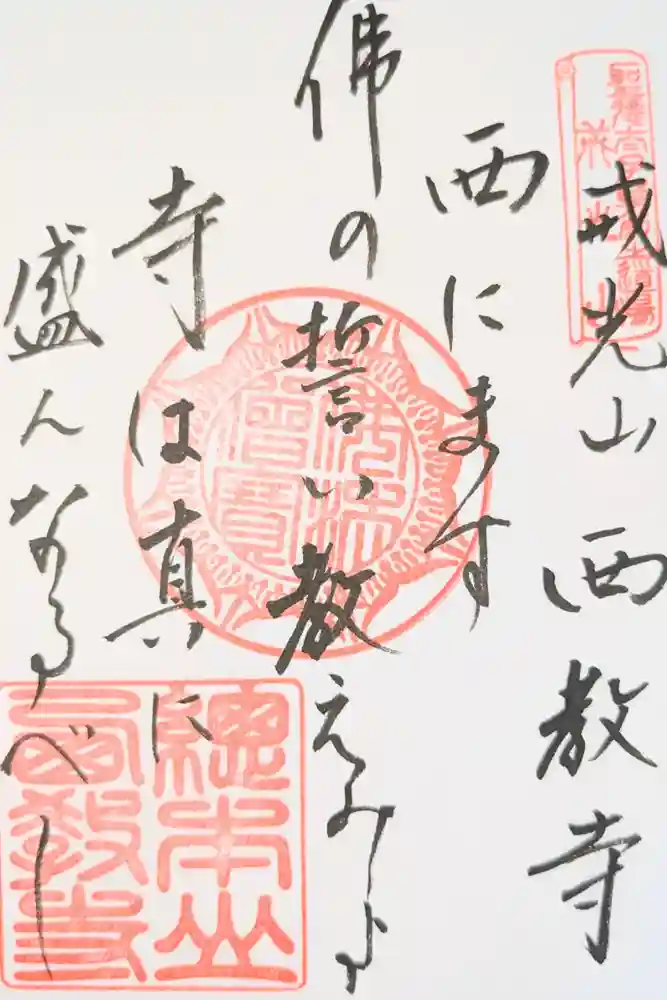 戒光山 西教寺
西にます
佛の誓い教えみよ
寺は真に
盛んなるべし
佛法
僧寶
總本山
西教寺